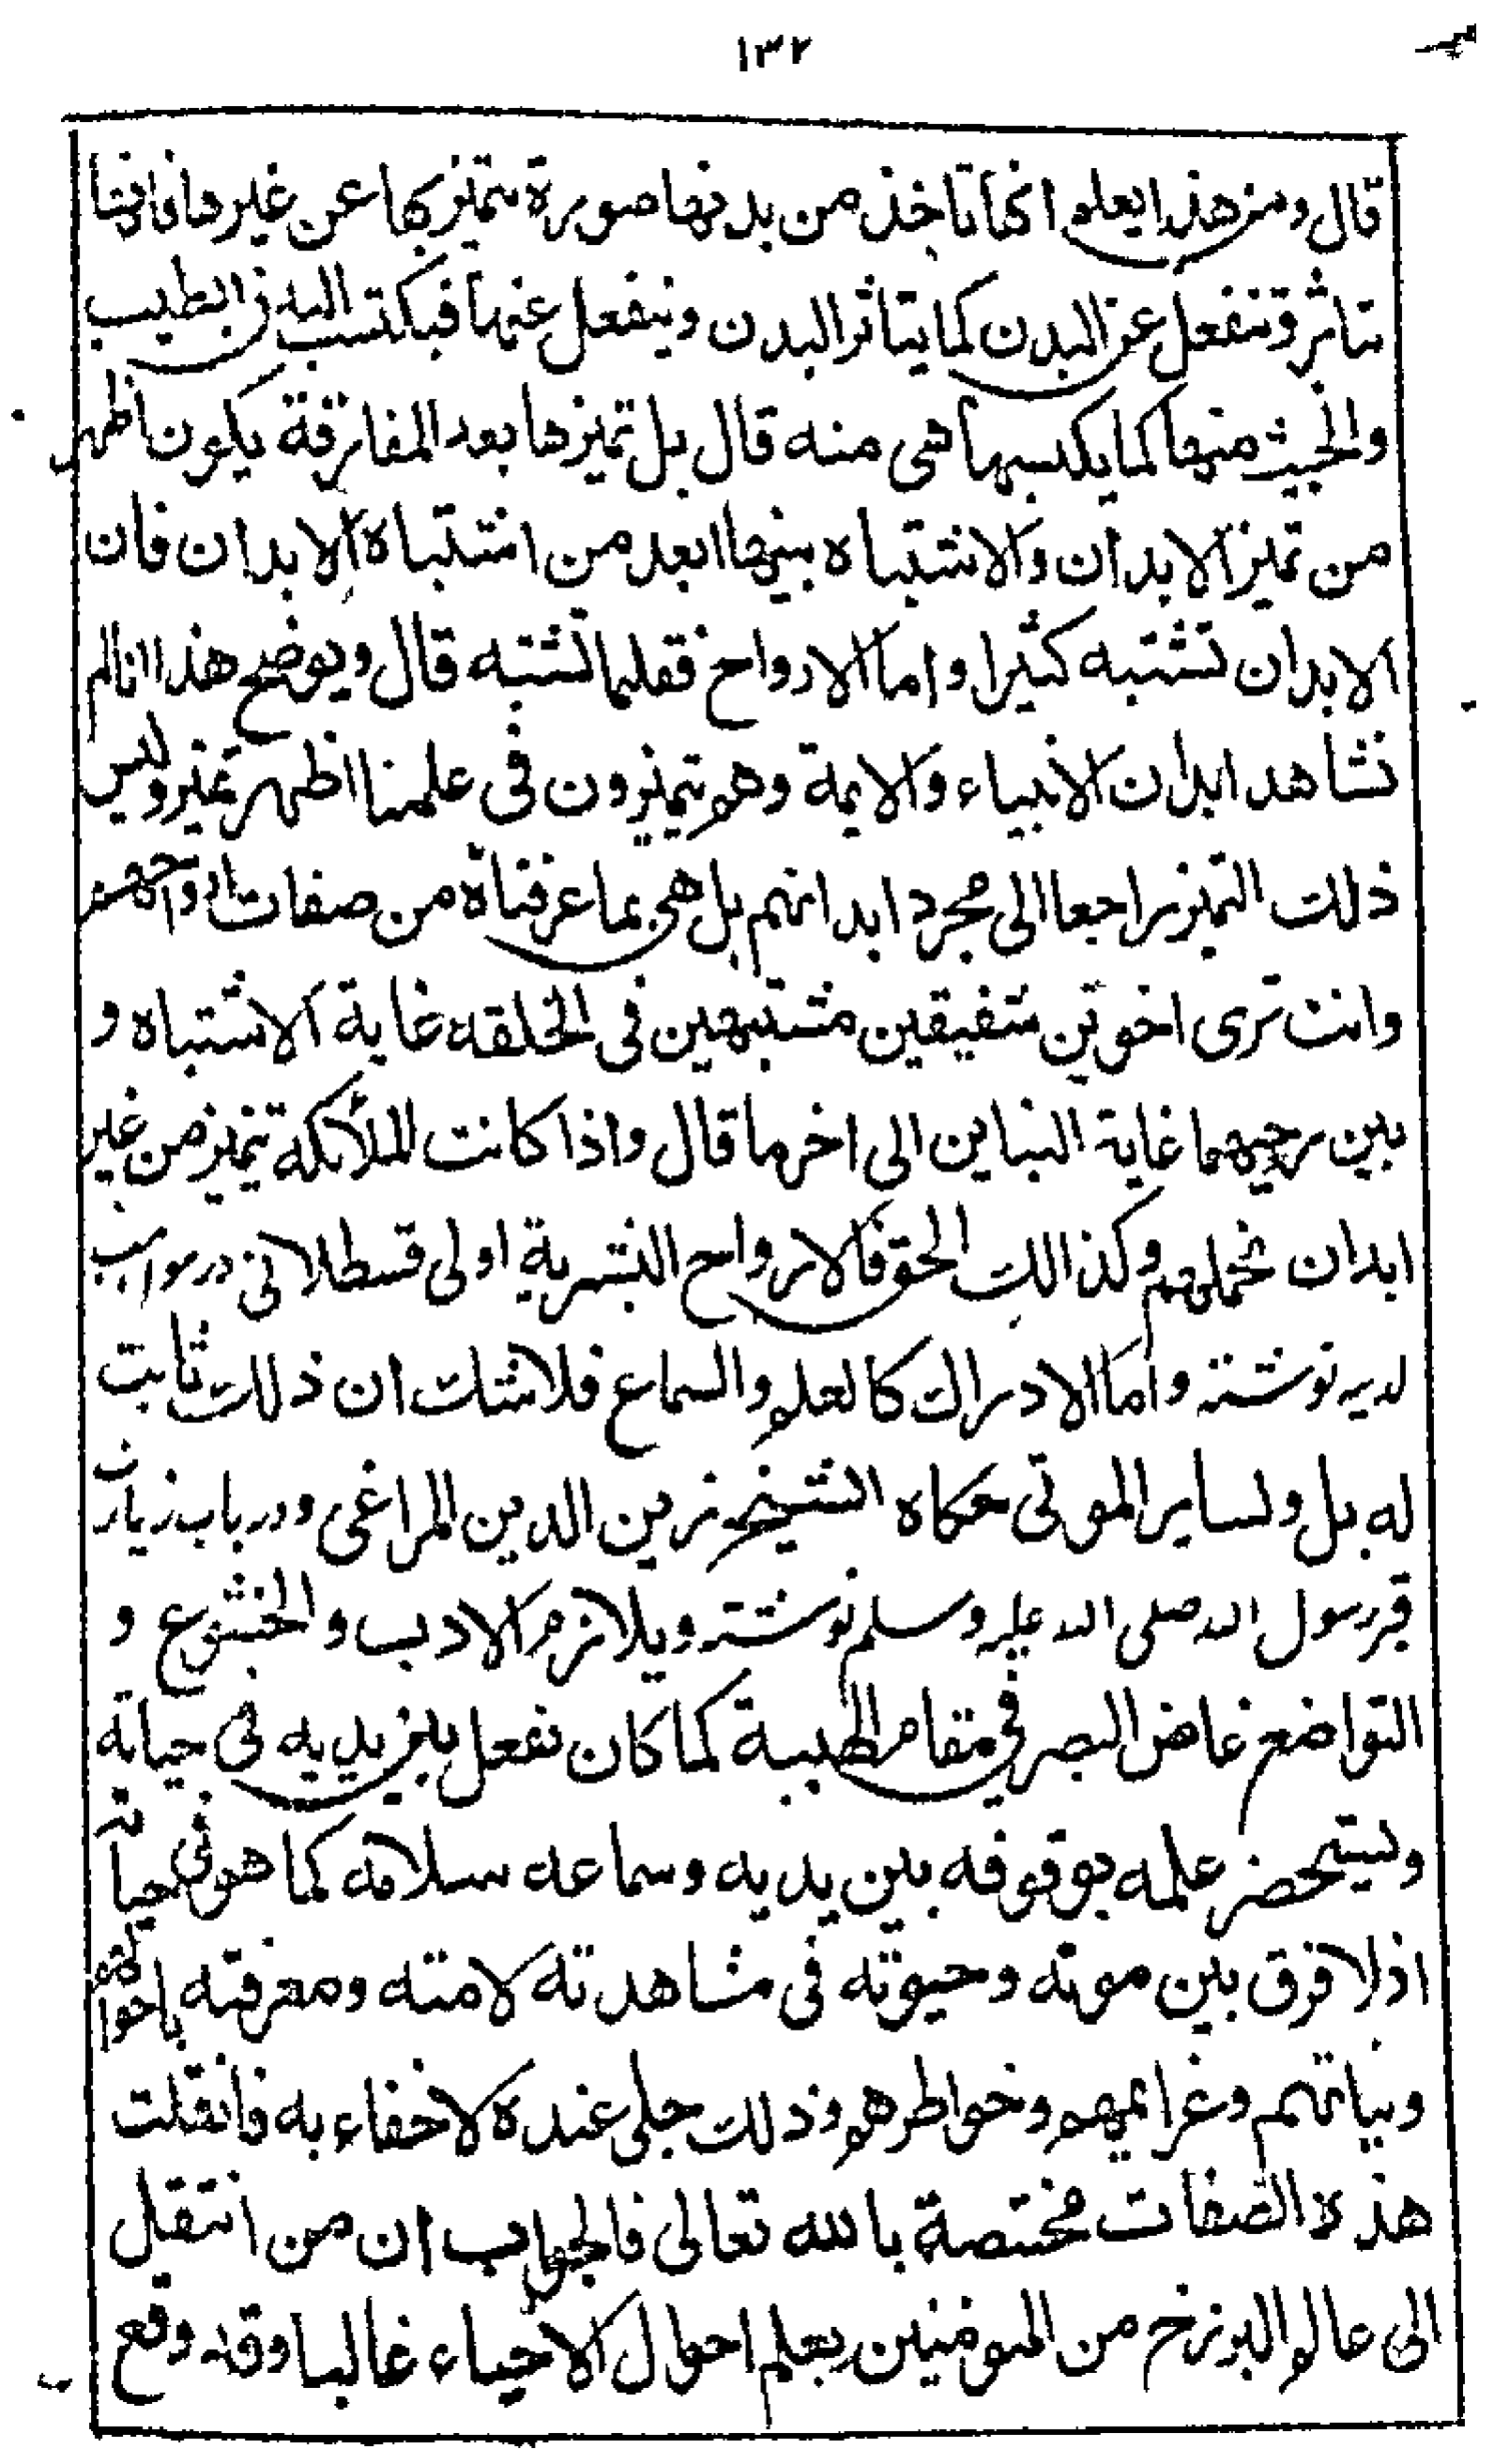 ١٣٢
قال ومن هذا يعلم انها تاخذ من بدنها صورة تتميز بها عن غيرها فانها
تتاثر وتنفعل عن البدن كما يتاثر البدن وينفعل عنها فيكتسب البدن الطيب
والخبيث منها كما يكتسبها هى منه قال بل تميزها بعد المفارقة يكون اظهر
من تميز الابدان والاشتباه بينها ابعد من اشتباه الابدان فان
الابدان تشتبه كثيرا واما الارواح فقلما تشتبه قال ويوضح هذا انا لم
نشاهد ابدان الانبياء والايمة وهم يتميزون فى علمنا اظهر تميز وليس
ذلك التميز راجعا الى مجرد ابدانهم بل هى بما عرفناه من صفات ارواحهم
وانت ترى اخوين شفيقين مشتبهين فى الخلقه غاية الاشتباه و
بين رحيهما غاية التباين الى اخر ما قال واذا كانت الملأئكة تتميز من غير
ابدان تحملهم وكذالك الحق فالارواح البشرية اولى قسطلانى در مواهب
لدیه نوشته واما الادراك كالعلم والسماع فلاشك ان ذلك ثابت
له بل ولساير الموتى حكاه الشيخ زين الدين المراغى و در باب زيارت
قبر رسول الله صلى الله عليه وسلم نوشته ويلازم الادب والخشوع و
التواضع غاض البصر فى مقام الهيبة كما كان نفعل بين يديه فى حياته
وليستحضر علمه بوقوفه بين يديه وسماعه سلامه كما هو فى حياته
اذلا فرق بين موته وحيوته فى مشاهدته لامته ومعرفته باحوالهم
ونياتهم وعزايمهم وخواطرهم وذلك جلى عنده لاخفاء به فانقلت
هذه الصفات مختصة بالله تعالى فالجواب ان من انتقل
الى عالم البرزخ من المومنين يعلم احوال الاحياء غالبا وقد وقع